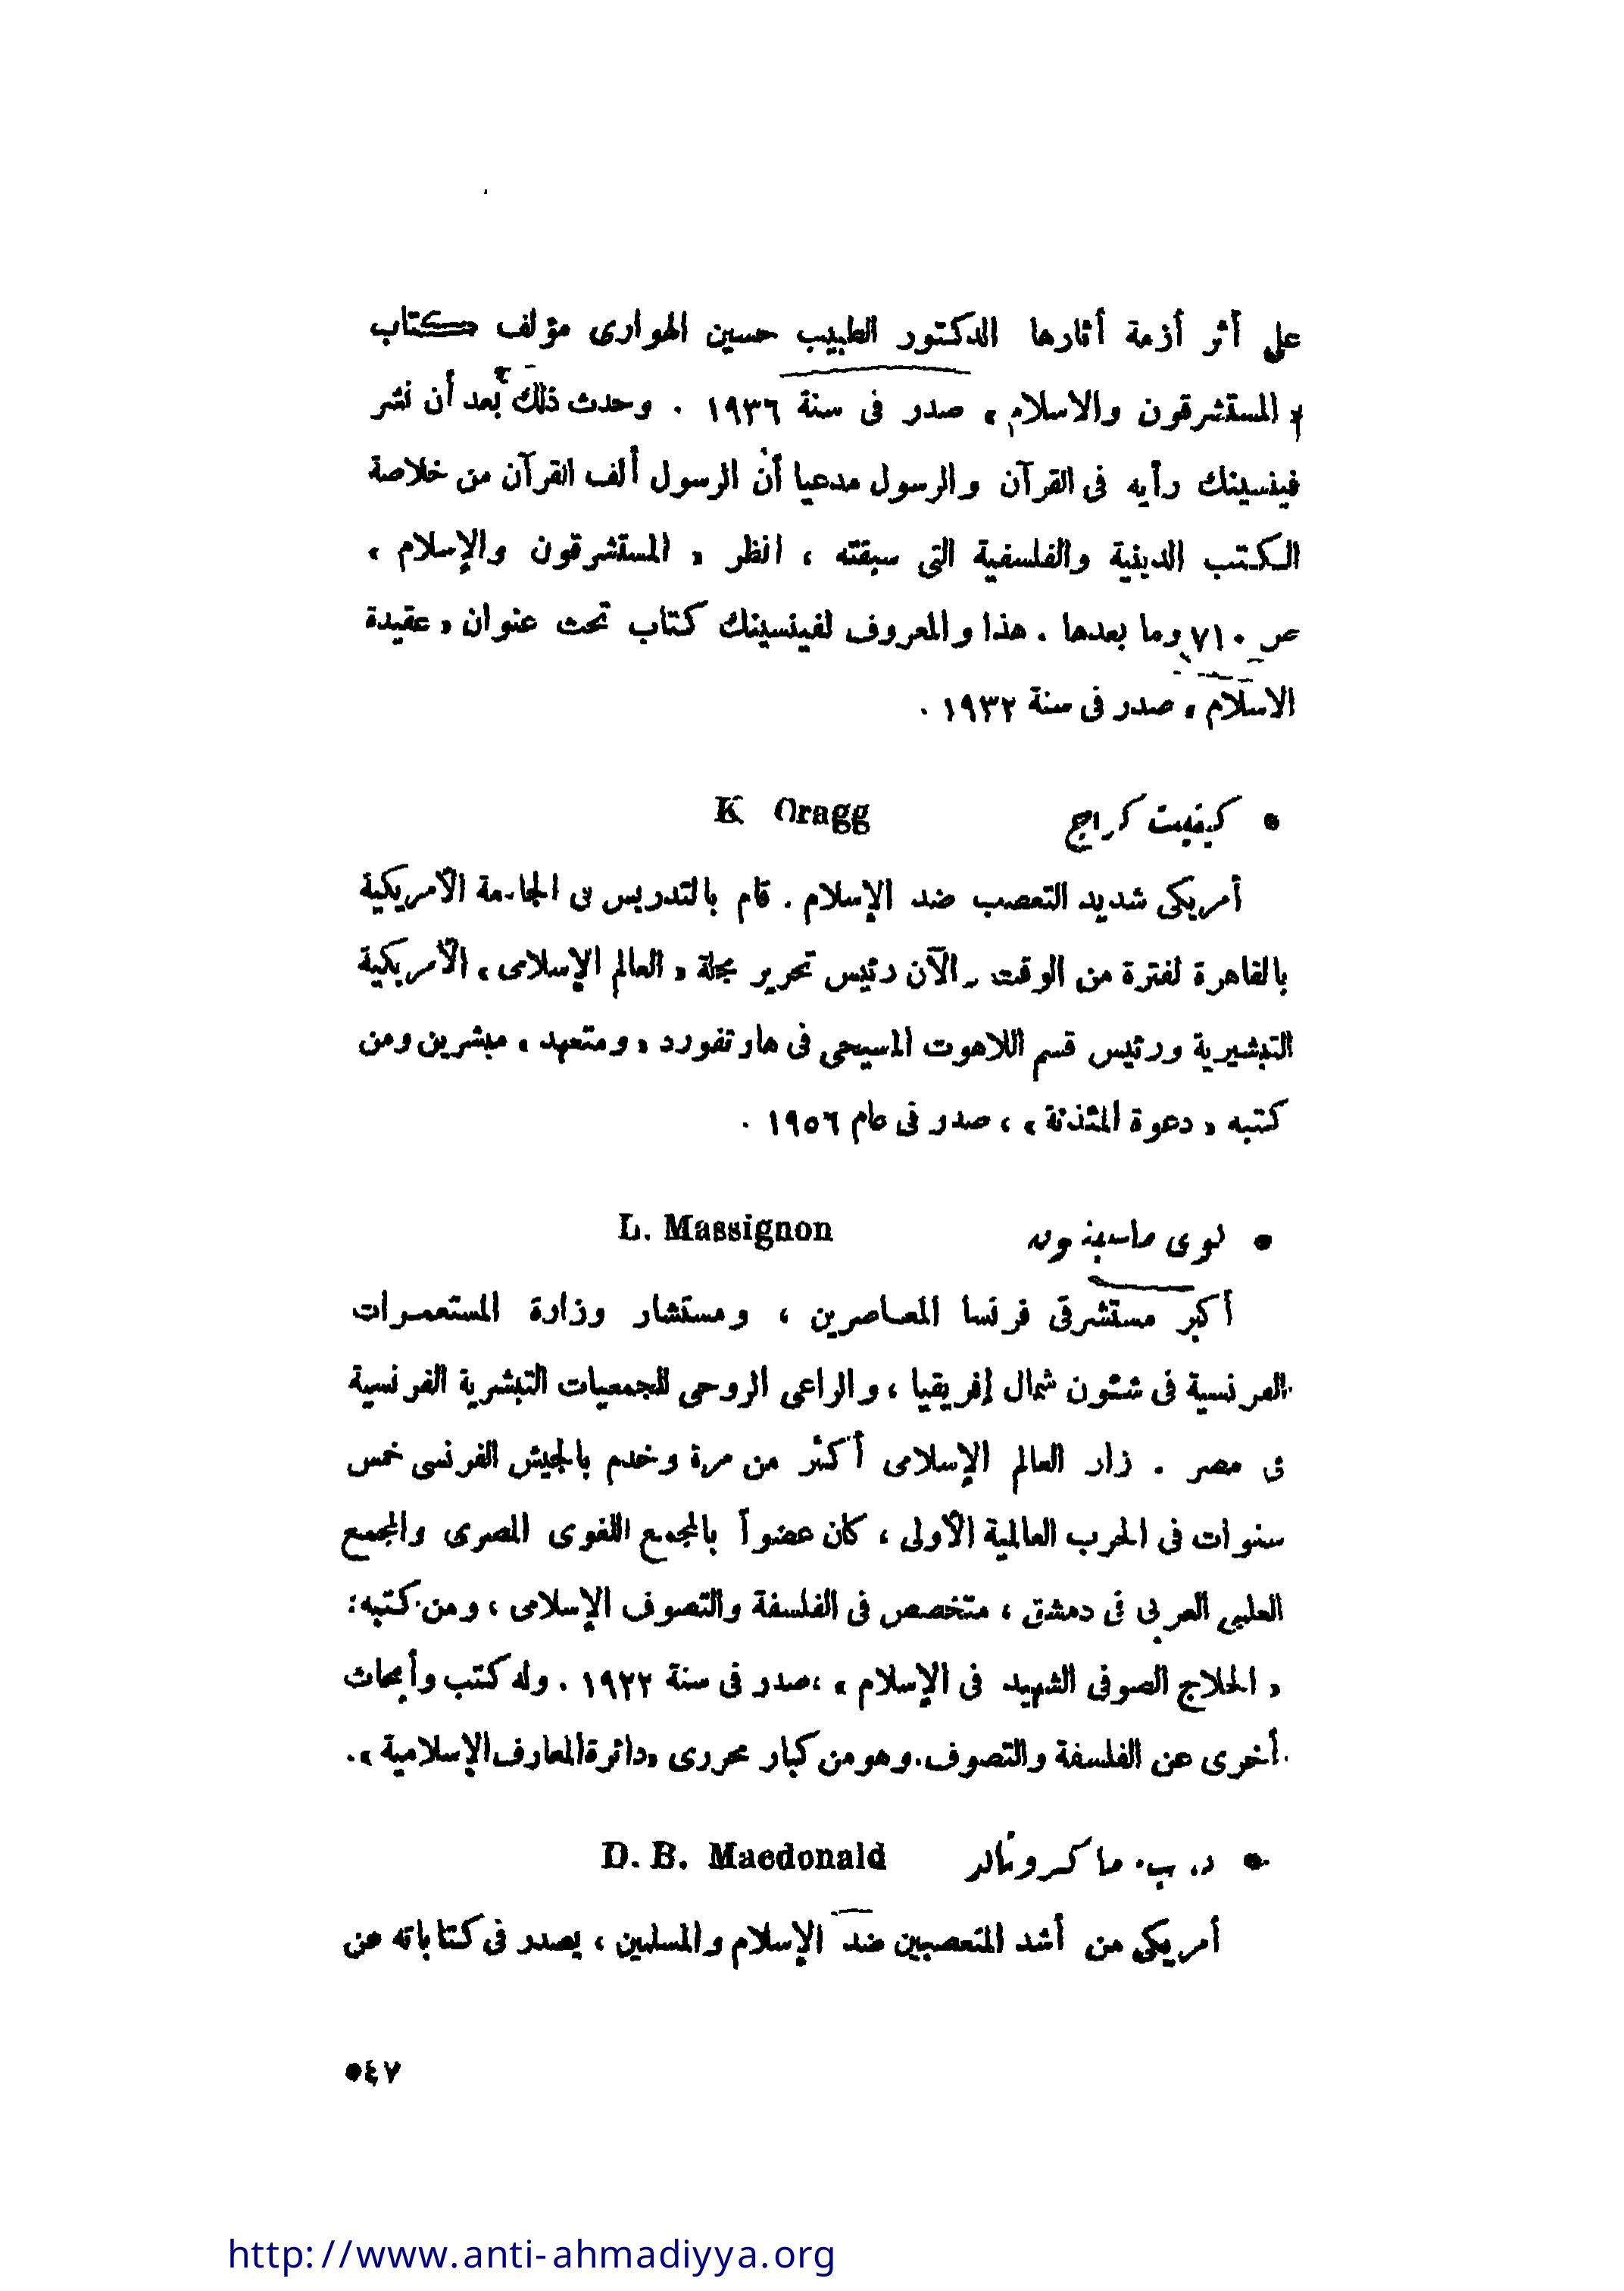 على أثر أزمة أثارها الدكتور الطبيب حسين الهوارى مؤلف كتاب
« المستشرقون والاسلام » صدر فى سنة ١٩٣٦ . وحدث ذلك بعد أن نشر
فينسينك رأيه فى القرآن والرسول مدعيا أن الرسول ألف القرآن من خلاصة
الكتب الدينية والفلسفية التى سبقته ، انظر « المستشرقون والإسلام »
ص ٧١٠ وما بعدها . هذا والمعروف لفينسينك كتاب تحت عنوان « عقيدة
الاسلام » صدر فى سنة ١٩٣٢ .
● كينيت كراج K Cragg
أمريكى شديد التعصب ضد الإسلام . قام بالتدريس فى الجامعة الأمريكية
بالقاهرة لفترة من الوقت ـ الآن رئيس تحرير مجلة « العالم الإسلامى » الأمريكية
التبشيرية ورئيس قسم اللاهوت المسيحى فى هارتفورد « ومتعهد » مبشرين ومن
كتبه « دعوة المئذنة » ، صدر فى عام ١٩٥٦ .
● لوى ماسينون L. Massignon
أكبر مستشرقى فرنسا المعاصرين ، ومستشار وزارة المستعمرات
الفرنسية فى شئون شمال إفريقيا ، والراعى الروحى للجمعيات التبشرية الفرنسية
فى مصر . زار العالم الإسلامى أكثر من مرة وخدم بالجيش الفرنسى خمس
سنوات فى الحرب العالمية الأولى ، كان عضواً بالمجمع اللغوى المصرى والمجمع
العلمى العربى فى دمشق ، متخصص فى الفلسفة والتصوف الإسلامى ، ومن كتبه :
« الحلاج الصوفى الشهيد فى الإسلام » ، صدر فى سنة ١٩٢٢ . وله كتب وأبحاث
أخرى عن الفلسفة والتصوف . وهو من كبار محررى « دائرة المعارف الإسلامية » .
● د. ب. ماكدونالد D. B. Macdonald
أمريكى من أشد المتعصبين ضد الإسلام والمسلمين ، يصدر فى كتاباته عن
٥٤٧
http://www.anti-ahmadiyya.org